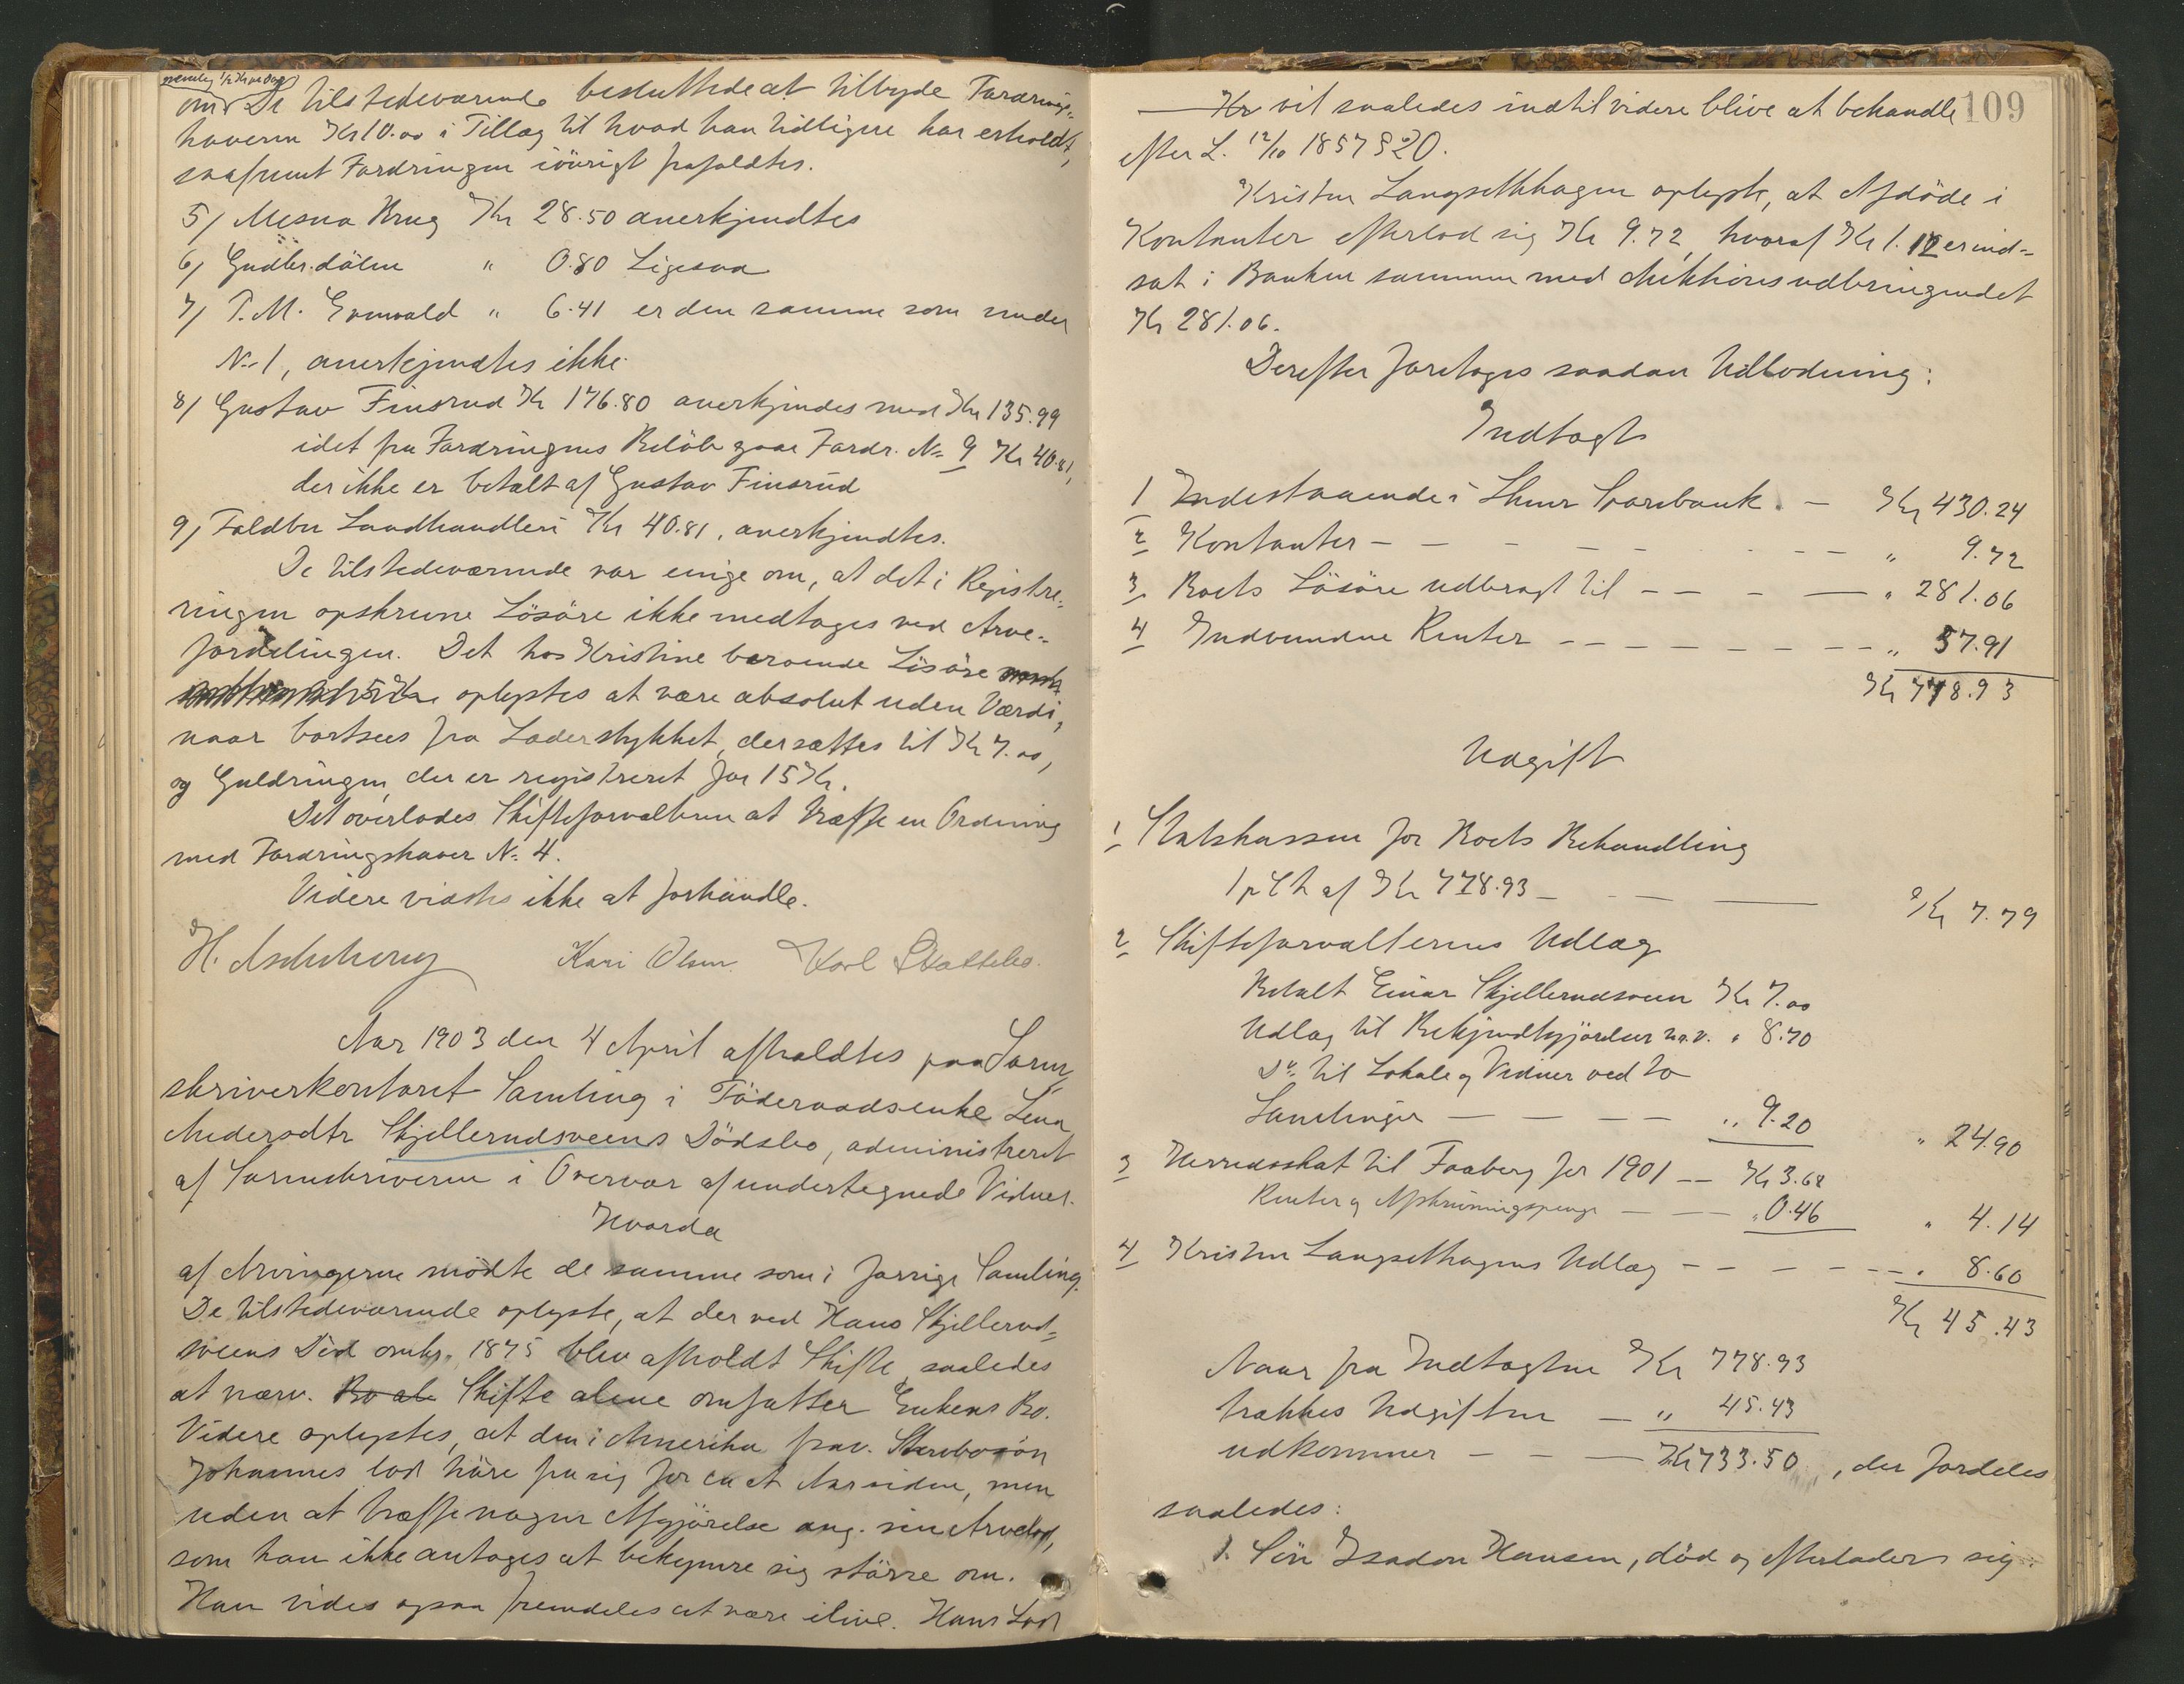 nemlig 1/2 Kr pr Dag
om. De tilstedeværende besluttede at tilbyde Fordrings-
haveren Kr 10.00 i Tillæg til hvad han tidligere har erholdt,
saafremt Fordringen iövrigt frafaldtes.
5/ Mesna Brug Kr 28.50 anerkjendtes
6/ Gudbr.dölen " 0.80 Ligesaa
7/ P.M. " 6.41 er den samme som under
No 1, anerkjendtes ikke.
8/ Gustav Finsrud Kr 176.80 anerkjendes med Kr 135.99
idet fra Fordringens Belöb gaar Fordr. No 9 Kr 40.81,
der ikke er betalt af Gustav Finsrud
9/ Foldbu Landhandleri Kr 40.81, anerkjendtes.
De tilstedeværende var enige om, at det i Registre-
ringen opskrevne Lösöre ikke medtages ved Arve-
fordelingen. Det hos Kristine beroende Lösöre
oplystes at være absolut uden Værdi,
naar bortsees fra Laderstykket, der sættes til Kr 7.00,
og Guldringen, der er registreret for 15 Kr.
Det overlodes Skifteforvalteren at træffe en Ordning
med Fordringshaver No 4.
Videre vidstes ikke at forhandle.
H. Aschehoug Kari Olsen. Karl Skattebo.
Aar 1903 den 4 April afholdtes paa Soren-
skriverkontoret Samling i Föderaadsenke Lena
Andersdtr Skjellerudsveens Dödsbo, administreret
af Sorenskriveren i Overvær af undertegnede Vidner.
Hvorda
af Arvingerne mödte de samme som i forrige Samling.
De tilstedeværende oplyste, at der ved Hans Skjellerud-
sveens Död omkr. 1875 blev afholdt Skifte, saaledes
at nærv. Bo ale Skifte alene omfatter Enkens Bo.
Videre oplystes, at den i Amerika frav. Sterbosön
Johannes lod höre fra sig for ca et Aar siden, men
uden at træffe nogen Afgjörelse ang. sin Arvelod,
som han ikke antages at bekymre sig större om.
Han vides ogsaa fremdeles at være ilive. Hans Lod
109
Kr vil saaledes indtil videre blive at behandle
efter L. 12/10 1857 § 20.
Kristen Langsethhagen oplyste, at Afdöde i
Kontanter efterlod sig Kr 9.72, hvoraf Kr 1.12 er ind-
sat i Banken sammen med Auktionsudbringendet
Kr 281.06.
Derefter foretoges saadan Udlodning:
Indtægt
1 Indestaaende i Thmr Sparebank. — Kr 430.24
2 Kontanter — — — " 9.72
3 Boets Lösöre udbragt til — — — " 281.06
4 Indvundne Renter — — — " 57.91
Kr 778.93
Udgift
1 Statskassen for Boets Behandling
1 pCt af Kr 778.93 — — Kr 7.79
2 Skifteforvalterens Udlæg
Betalt Einar Skjellerudsveen Kr 7.00
Udlæg til Bekjendtgjörelser m.v. " 8.70
Do til Lokale og Vidner ved to
Samlinger — — — — " 9.20 " 24.90
3 Herredsskat til Faaberg for 1901 — Kr 3.68
Renter og Afskrivningspenge — — " 0.46 " 4.14
4 Kristen Langsethagens Udlæg — — — — " 8.60
Kr 45.43
Naar fra Indtægten Kr 778.93
trækkes Udgiften — " 45.43
udkommer — — — Kr 733.50, der fordeles
saaledes:
1. Sön Isadon Hansen, död og efterlader sig: